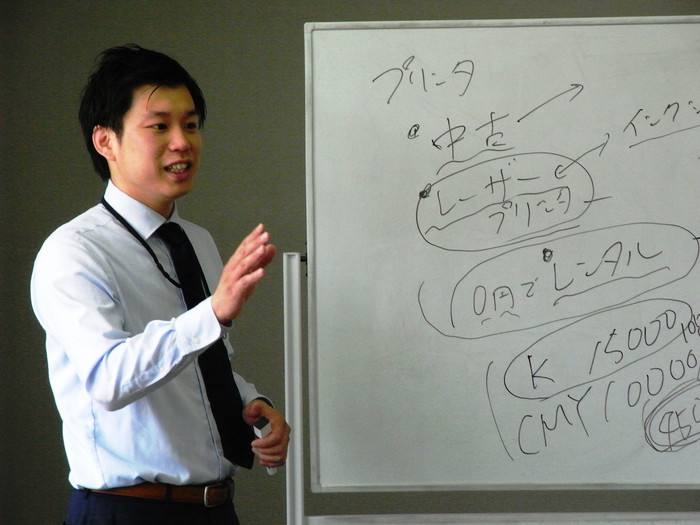 プリンタ
中古
インクジ
レーザー
プリンタ
0円でレンタル
K 15000
CMY 10000